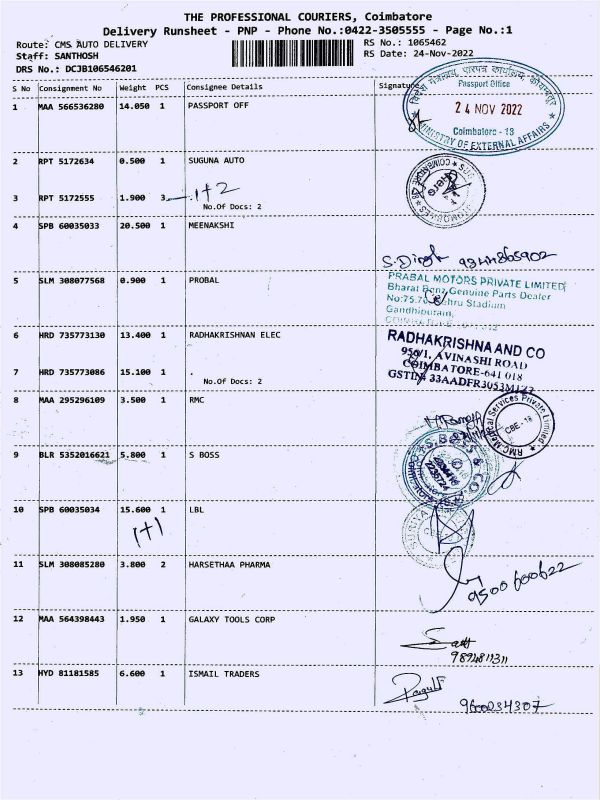 THE PROFESSIONAL COURIERS, Coimbatore
Delivery Runsheet - PNP - Phone No.:0422-3505555 - Page No.:1
Route: CMS AUTO DELIVERY RS No.: 1065462
Staff: SANTHOSH RS Date: 24-Nov-2022
DRS No.: DCJB106546201
S No Consignment No Weight PCS Consignee Details Signature
1 MAA 566536280 14.050 1 PASSPORT OFF
Passport Office
24 NOV 2022
Coimbatore - 18
MINISTRY OF EXTERNAL AFFAIRS
2 RPT 5172634 0.500 1 SUGUNA AUTO
3 RPT 5172555 1.900 3 1+2
No.Of Docs: 2
4 SPB 60035033 20.500 1 MEENAKSHI
5 SLM 308077568 0.900 1 PROBAL
PRABAL MOTORS PRIVATE LIMITED
Bharat Benz Genuine Parts Dealer
Gandhipuram,
6 HRD 735773130 13.400 1 RADHAKRISHNAN ELEC
RADHAKRISHNA AND CO
959/1, AVINASHI ROAD
COIMBATORE-641 018
7 HRD 735773086 15.100 1 .
No.Of Docs: 2
8 MAA 295296109 3.500 1 RMC
RMC Medical Services Private Limited
CBE - 18
9 BLR 5352016621 5.800 1 S BOSS
10 SPB 60035034 15.600 1 LBL
1+1
11 SLM 308085280 3.800 2 HARSETHAA PHARMA
9500600622
12 MAA 564398443 1.950 1 GALAXY TOOLS CORP
13 HYD 81181585 6.600 1 ISMAIL TRADERS
9600234307